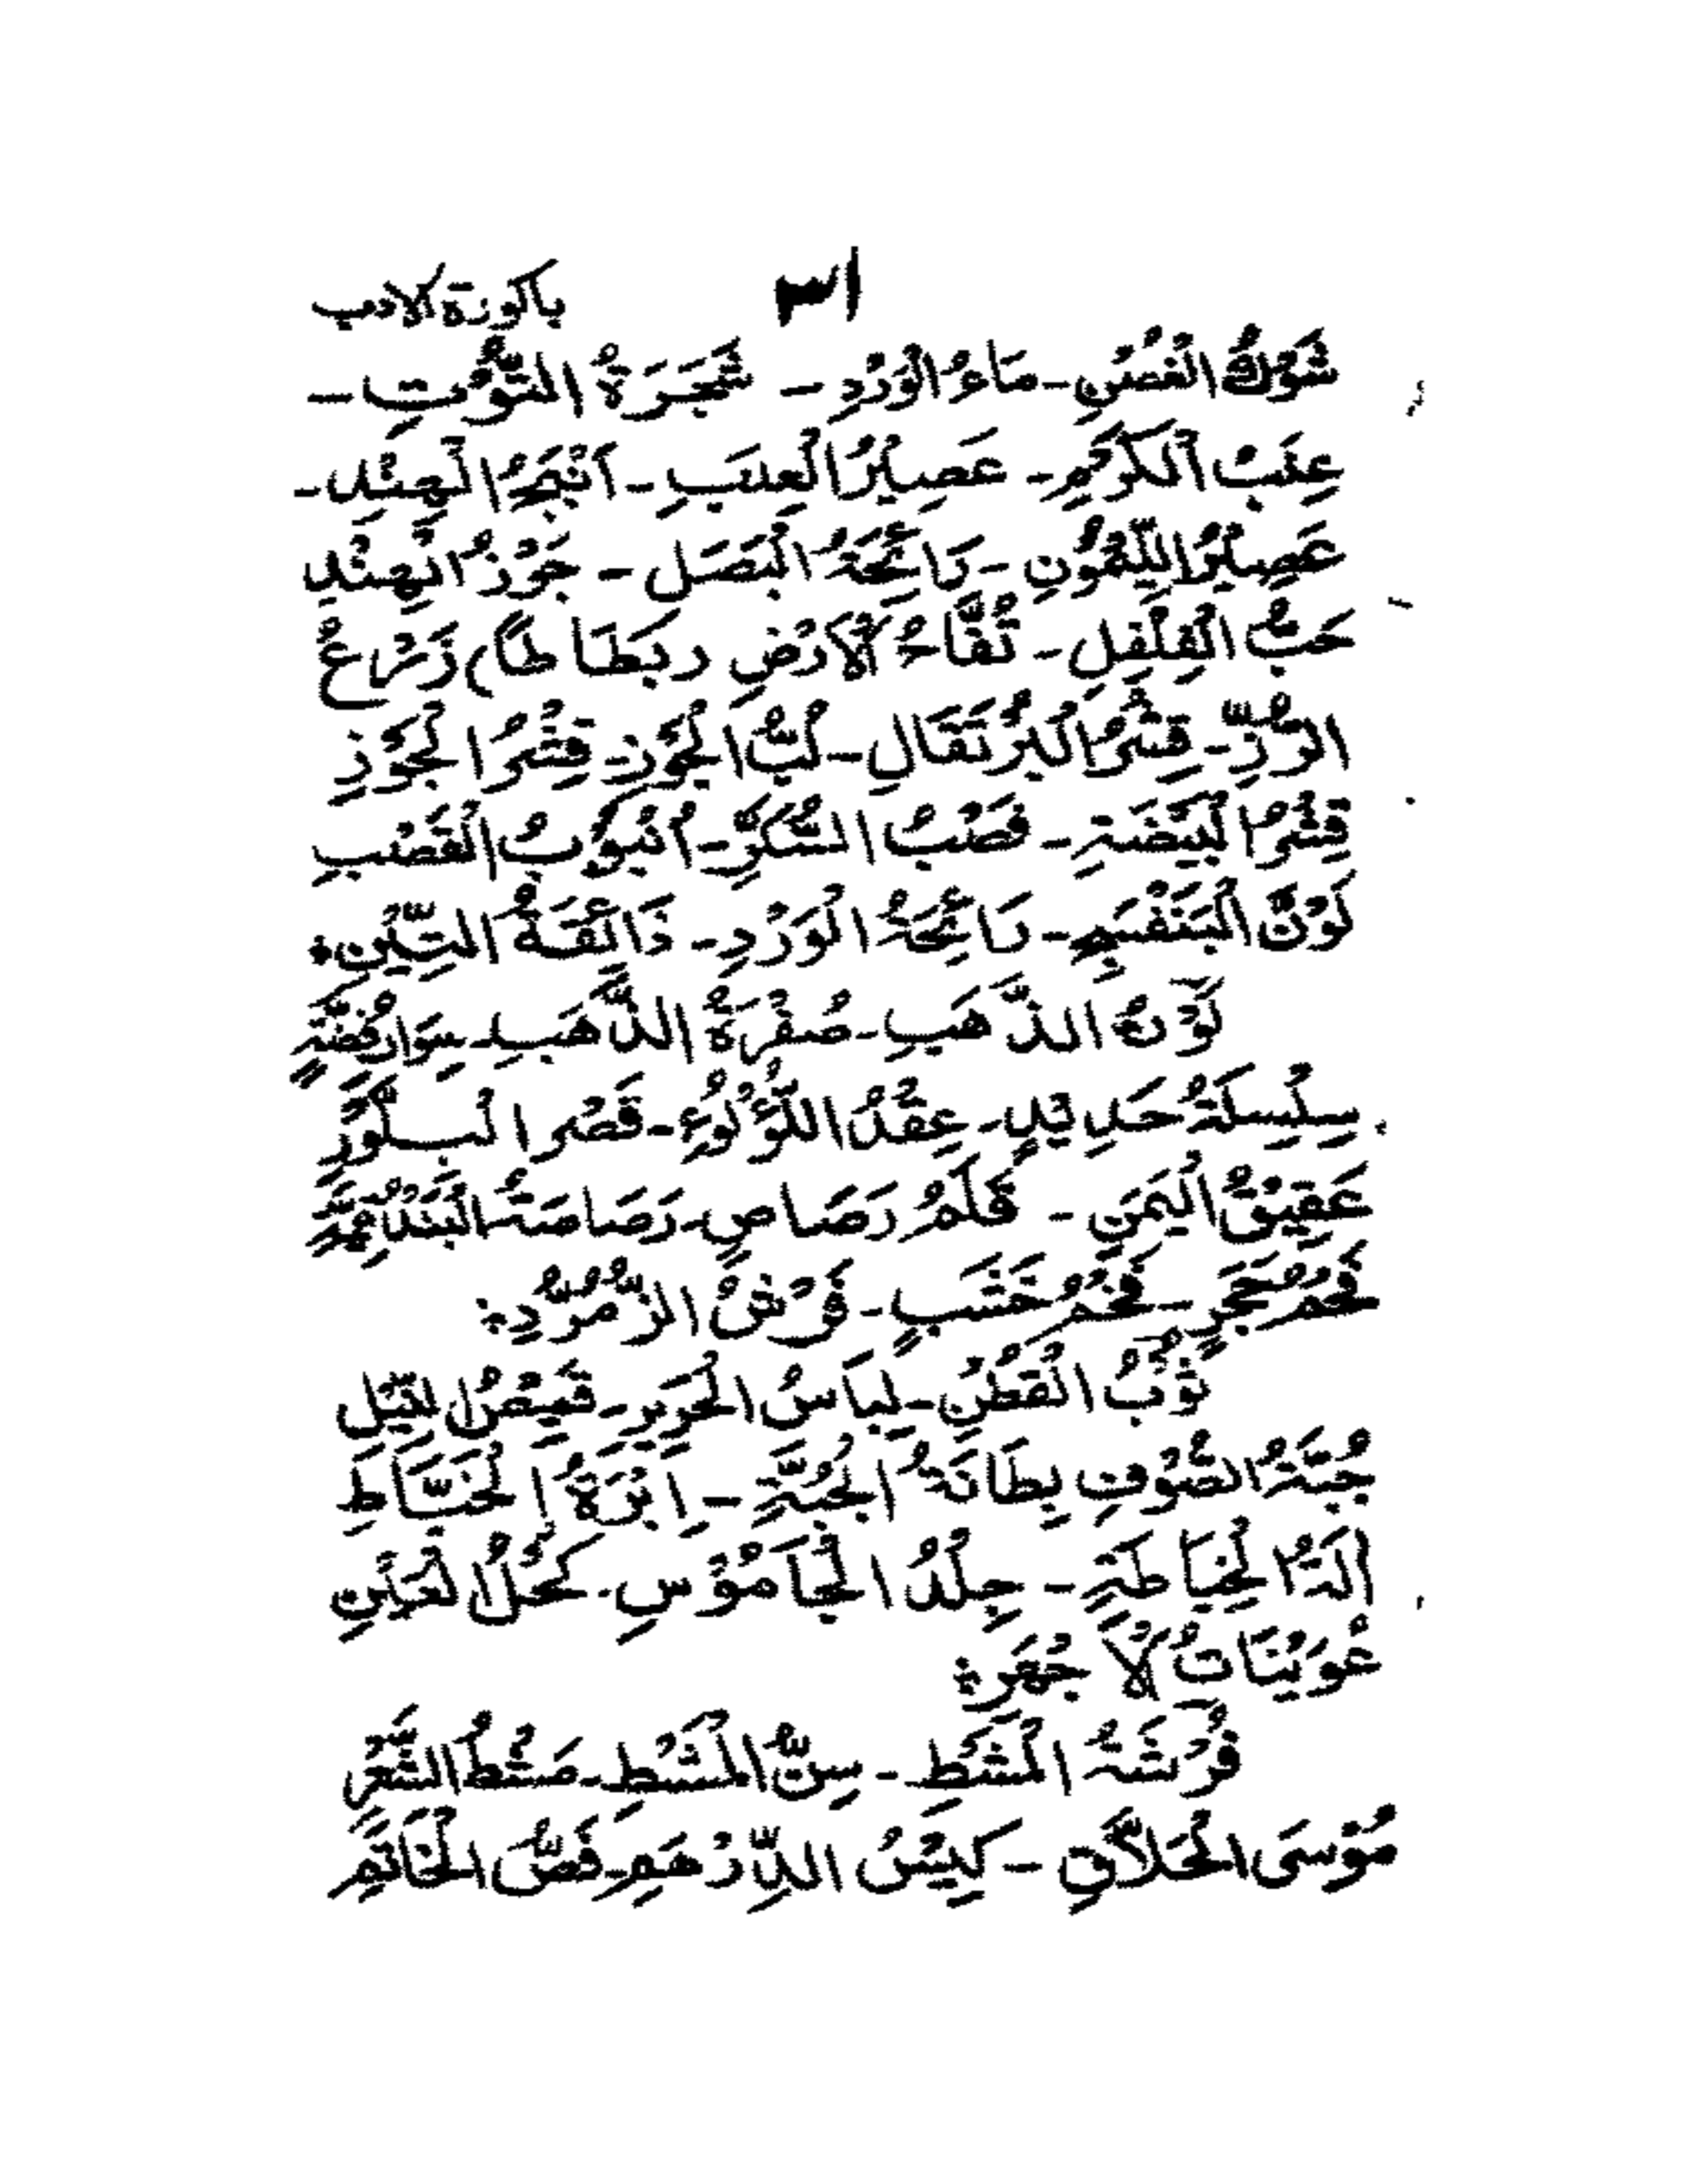 ١٣ باكورة الادب
شَوْكُ الْغُصْنِ - مَاءُ الْوَرْدِ - شَجَرَةُ التُّوْتِ -
عِنَبُ الْكَرْمِ - عَصِيْرُ الْعِنَبِ - اَنْبَجُ الْهِنْدِ -
عَصِيْرُ اللَّيْمُوْنِ - رَائِحَةُ الْبَصَلِ - جَوْزُ الْهِنْدِ
حَبُّ الْفِلْفِلِ - تُفَّاحُ الْاَرْضِ (بَطَاطَا) زَرْعُ
الْاُرُزِّ - قِشْرُ الْبُرْتَقَالِ - لُبُّ الْجَوْزِ - قِشْرُ الْجَوْزِ
قِشْرُ الْبَيْضَةِ - قَصْبُ السُّكَّرِ - اُنْبُوْبُ الْقَصْبِ
لَوْنُ الْبَنَفْسَجِ - رَائِحَةُ الْوَرْدِ - ذَائِقَةُ التِّيْنِ ؛
لَوْنُ الذَّهَبِ - صُفْرَةُ الذَّهَبِ - سِوَارُ فِضَّةٍ
سِلْسِلَةُ حَدِيْدٍ - عِقْدُ اللُّؤْلُوءِ - قَصْرُ الْبِلَّوْرِ
عَقِيْقُ الْيَمَنِ - قَلَمُ رَصَاصٍ - رَصَاصَةُ الْبُنْدُقِيَّةِ
فَحْمُ حَجَرٍ - فَحْمُ خَشَبٍ - فَرْشُ الزُّمُرُّدِ ؛
ثَوْبُ الْقُطْنِ - لِبَاسُ الْحَرِيْرِ - قَمِيْصُ اللَّيْلِ
جُبَّةُ الصُّوْفِ بِطَانَةُ الْجُبَّةِ - اِبْرَةُ الْخَيَّاطِ
اٰلَةُ الْخِيَاطَةِ - جِلْدُ الْجَامُوْسِ - كُحْلُ الْعَيْنِ
عُوَيْنَاتُ الْاَجْهَرِ ؛
فُرْشَةُ الْمُشْطِ - سِنُّ الْمُشْطِ - مَشْطُ الشَّعْرِ
مُوْسَى الْحَلَّاقِ - كِيْسُ الدِّرْهَمِ - فَصُّ الْخَاتَمِ